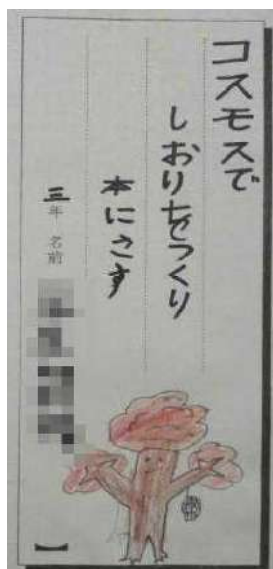 コスモスで
しおりをつくり
本にさす
三年 名前